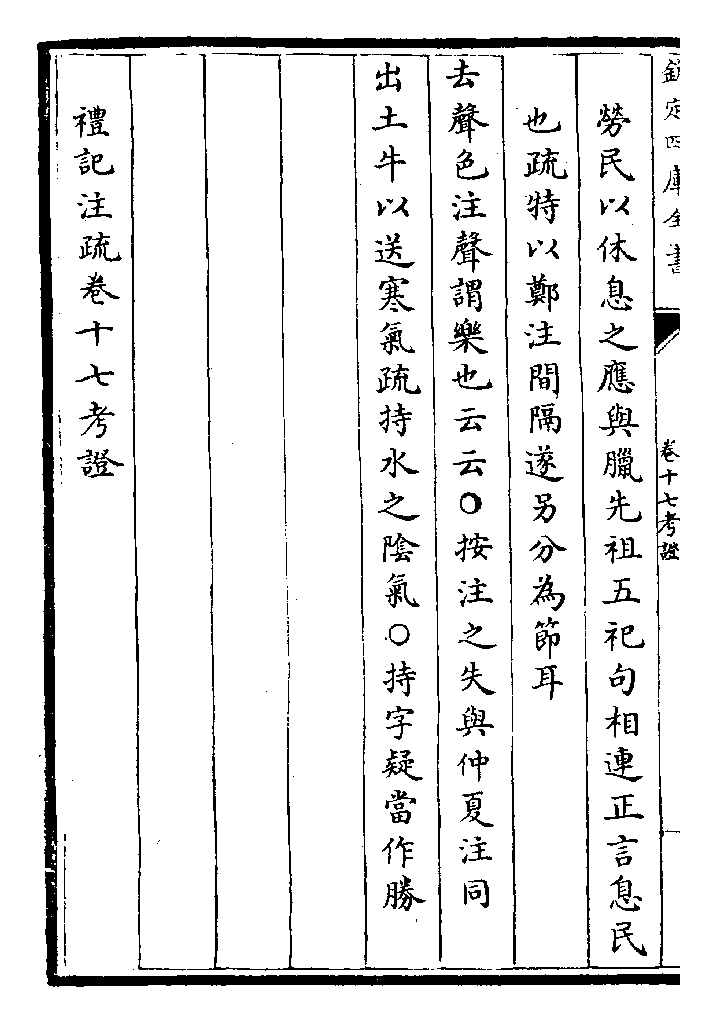 欽定四庫全書
卷十七考證
勞民以休息之應與臘先祖五祀句相連正言息民
也疏特以鄭注間隔遂另分為節耳
去聲色注聲謂樂也云云○按注之失與仲夏注同
出土牛以送寒氣疏持水之陰氣○持字疑當作勝
禮記注疏卷十七考證